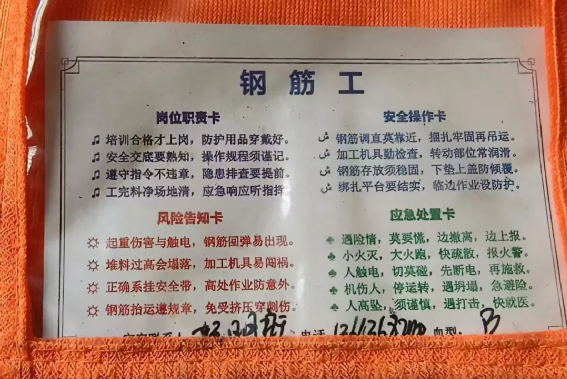 钢筋工
岗位职责卡
培训合格才上岗，防护用品穿戴好。
安全交底要熟知，操作规程须谨记。
遵守指令不违章，隐患排查要提前。
工完料净场地清，应急响应听指挥
安全操作卡
钢筋调直莫靠近，捆扎牢固再吊运。
加工机具勤检查，转动部位常润滑。
钢筋存放须稳固，下垫上盖防倾覆。
绑扎平台要结实，临边作业设防护。
风险告知卡
起重伤害与触电，钢筋回弹易出现。
堆料过高会塌落，加工机具易闯祸。
正确系挂安全带，高处作业防意外。
钢筋抬运遵规章，免受挤压穿刺伤。
应急处置卡
遇险情，莫要慌，边撤离，边上报。
小火灭，大火跑，快疏散，报火警。
人触电，切莫碰，先断电，再施救。
机伤人，停运转，遇坍塌，急避险。
人高坠，须谨慎，遇打击，快就医。
电话 血型：B